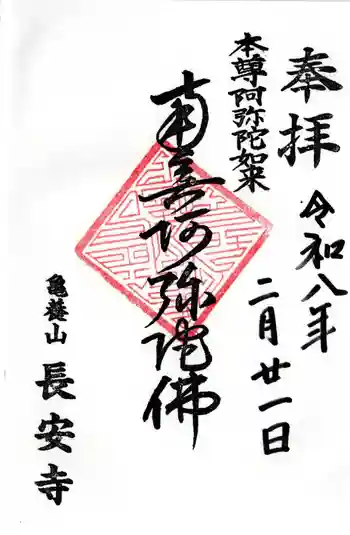 奉拝
令和八年
二月廿一日
本尊阿弥陀如来
南無阿弥陀佛
亀養山
長安寺